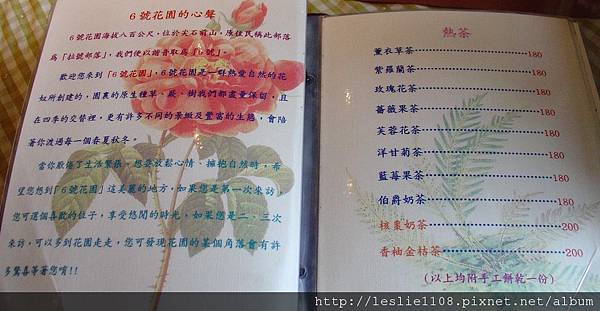 6號花園的心聲
6號花園海拔八百公尺,位於尖石前山,原住民稱此部落
為「拉號部落」,我們便以諧音取為「6號」。
歡迎您來到「6號花園」,6號花園是一群熱愛自然的花
奴所創建的,園裏的原生種草、蕨、樹我們都盡量保留,且
在四季的交替裡,更有許多不同的景緻及豐富的生態,會陪
著你渡過每一個春夏秋冬。
當你厭倦了生活緊張,想要放鬆心情、擁抱自然時,希
望您想到「6號花園」這美麗的地方,如果您是第一次來訪,
您可選個喜歡的位子,享受悠閒的時光,如果您是二、三次
來訪,可以多到花園走走,您可發現花園的某個角落會有許
多驚喜等著您唷!!
熱茶
薰衣草茶 180
紫羅蘭茶 180
玫瑰花茶 180
薔薇果茶 180
芙蓉花茶 180
洋甘菊茶 180
藍莓果茶 180
伯爵奶茶 180
核棗奶茶 200
香柚金桔茶 200
(以上均附手工餅乾一份)
http://leslie1108.pixnet.net/album